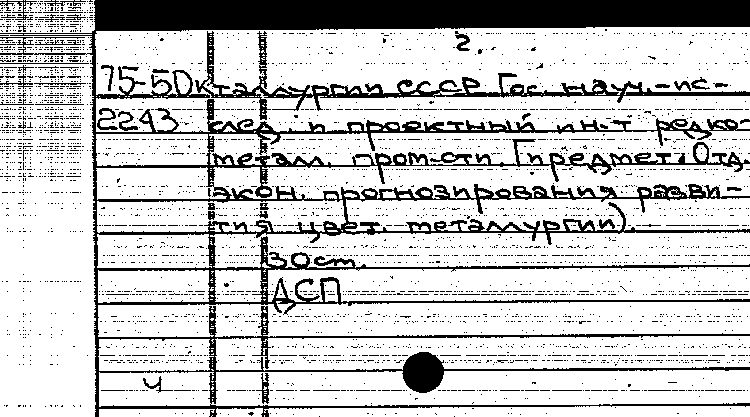 2.
75-5Dк таллургии СССР Гос. науч.-ис-
2243 след. и проектный ин-т редко-
металл. пром-сти. Гиредмет. Отд.
экон. прогнозирования разви-
тия цвет. металлургии).
30cm.
ДСП.
ч